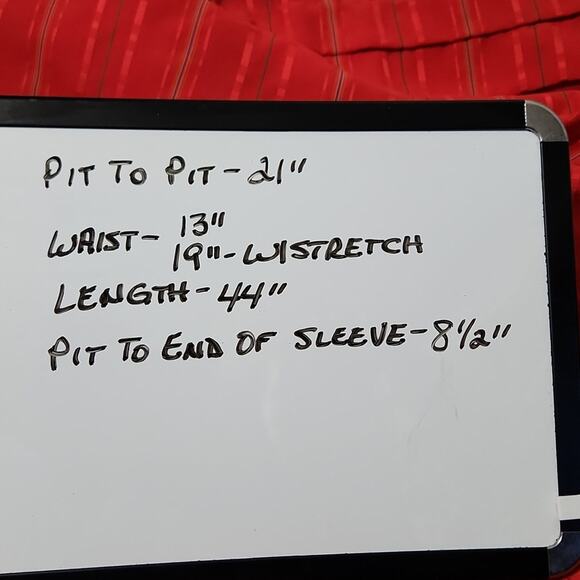 PIT TO PIT - 21"
WAIST - 13"
19" - W/STRETCH
LENGTH - 44"
PIT TO END OF SLEEVE - 8 1/2"